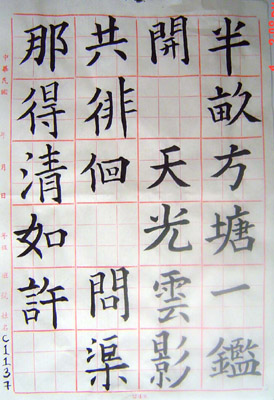 半畝方塘一鑑
開 天光雲影
共徘徊 問渠
那得清如許
中華民國 年 月 日
C1137